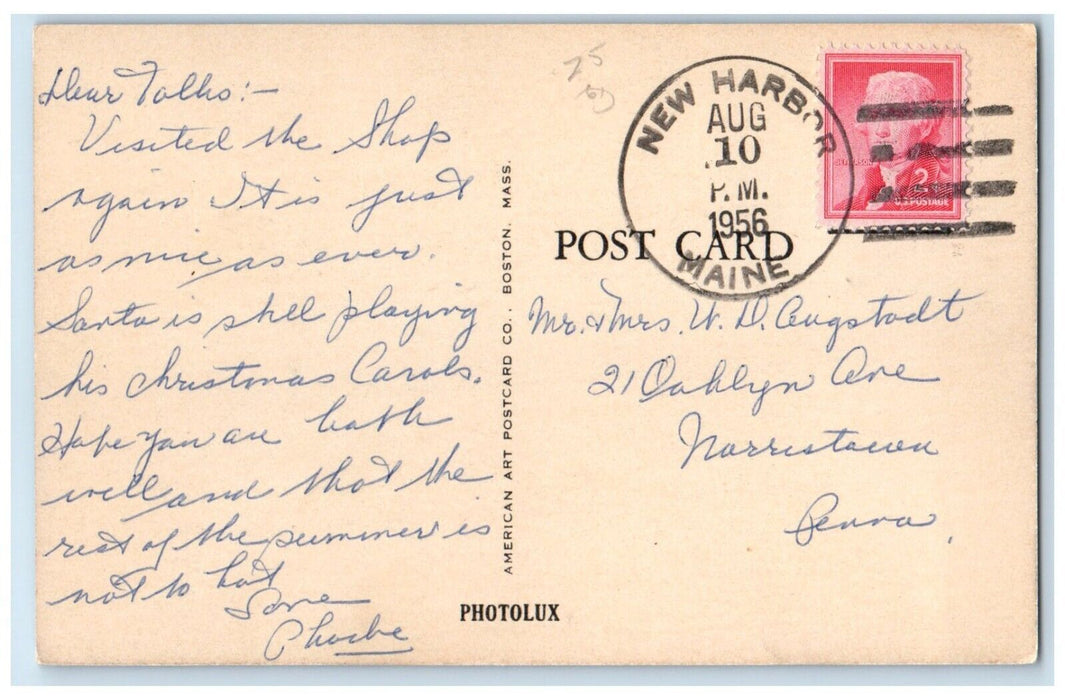 Dear Folks:-
Visited the Shop
again It is just
as nice as ever.
Santa is still playing
his Christmas Carols.
Hope you are both
well and that the
rest of the summer is
not to hot
Love
Phoebe
AMERICAN ART POSTCARD CO., BOSTON. MASS.
PHOTOLUX
25
NEW HARBOR
AUG
10
P.M.
1956
MAINE
JEFFERSON
2¢
U.S. POSTAGE
POST CARD
Mr. & Mrs. W. D. Augstadt
21 Oaklyn Ave
Norristown
Penna.